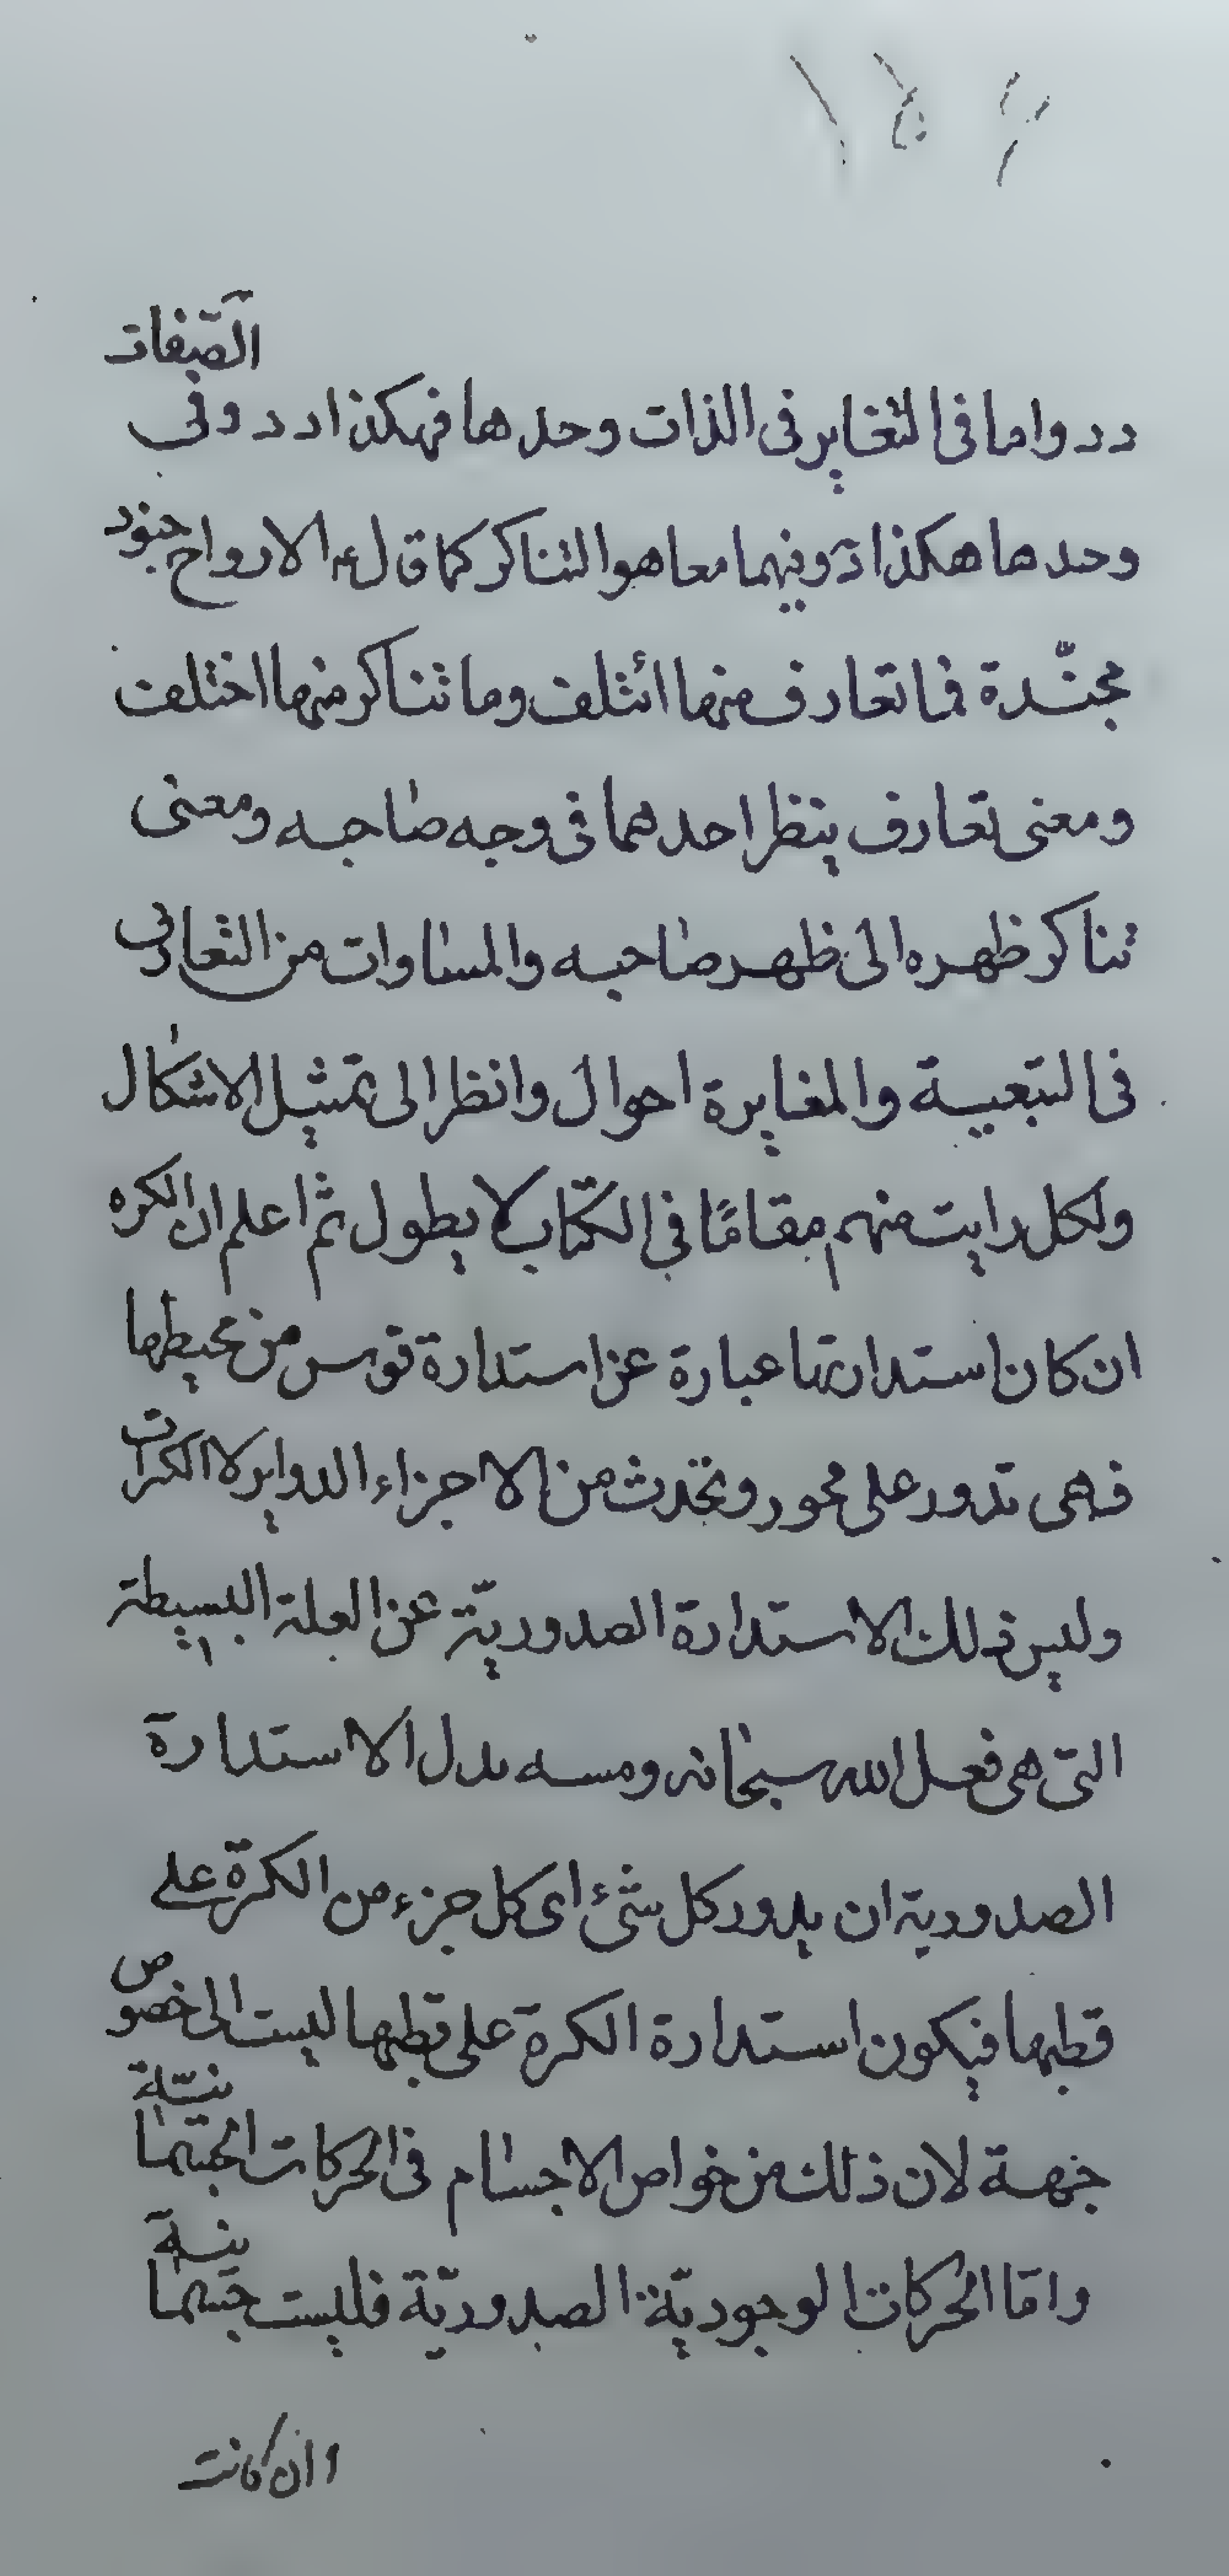 د د واما فى التغاير فى الذات وحدها فهكذا د د وفى الصّفات
وحدها هكذا د وفيهما معا هو التناكر كما قال ع الارواح جنود
مجنّدة فما تعارف منها ائتلف وما تناكر منها اختلف
ومعنى تعارف ينظر احدهما فى وجه صاحبه ومعنى
تناكر ظهره الى ظهر صاحبه والمساوات من التعادل
فى التبعية والمغايرة احوال وانظر الى تمثيل الاشكال
ولكل رايت منهم مقامًا فى الكتاب لا يطول ثم اعلم ان الكره
ان كان استدارتها عبارة عن استدارة قوس من محيطها
فهى تدور على محور وتحدث من الاجزاء الدواير لا الكرات
وليس ذلك الاستدارة الصدوريّة عن العلة البسيطة
التى هى فعل الله سبحانه ومسه بدل الاستدارة
الصدورية ان يدور كل شئ اى كل جزء من الكرة على
قطبها فيكون استدارة الكرة على قطبها ليست الى خصوص
جهة لان ذلك من خواص الاجسام فى الحركات الجسمانيّة
وامّا الحركات الوجوديّة الصدوريّة فليست جسمانية
وان كانت